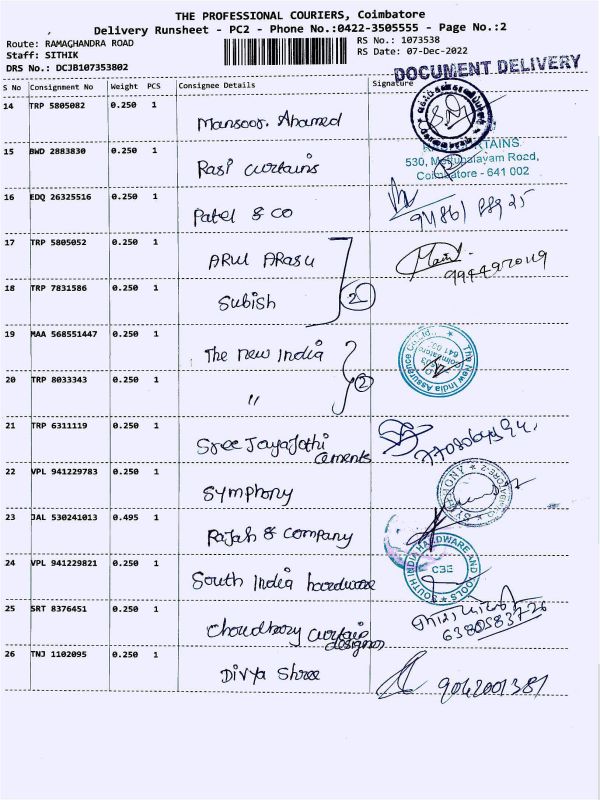 THE PROFESSIONAL COURIERS, Coimbatore
Delivery Runsheet - PC2 - Phone No.:0422-3505555 - Page No.:2
Route: RAMAGHANDRA ROAD
Staff: SITHIK
DRS No.: DCJB107353802
RS No.: 1073538
RS Date: 07-Dec-2022
DOCUMENT DELIVERY
S No Consignment No Weight PCS Consignee Details Signature
14 TRP 5805082 0.250 1 Mansoor Ahamed
15 BWD 2883830 0.250 1 Rasi curtains
CURTAINS
530, Mettupalayam Road,
Coimbatore - 641 002
16 EDQ 26325516 0.250 1 Patel & co
17 TRP 5805052 0.250 1 ARUL ARASU
18 TRP 7831586 0.250 1 Subish
2
19 MAA 568551447 0.250 1 The New India
The New India Assurance Co. Ltd.
20 TRP 8033343 0.250 1 "
2
21 TRP 6311119 0.250 1 Sree JayaJothi
cements
22 VPL 941229783 0.250 1 Symphony
SYMPHONY
23 JAL 530241013 0.495 1 Rajah & company
24 VPL 941229821 0.250 1 South India hardware
SOUTH INDIA HARDWARE AND TOOLS
CBE
25 SRT 8376451 0.250 1 Choudhary curtain
designer
6380583726
26 TNJ 1102095 0.250 1 Divya Shree
9042001381